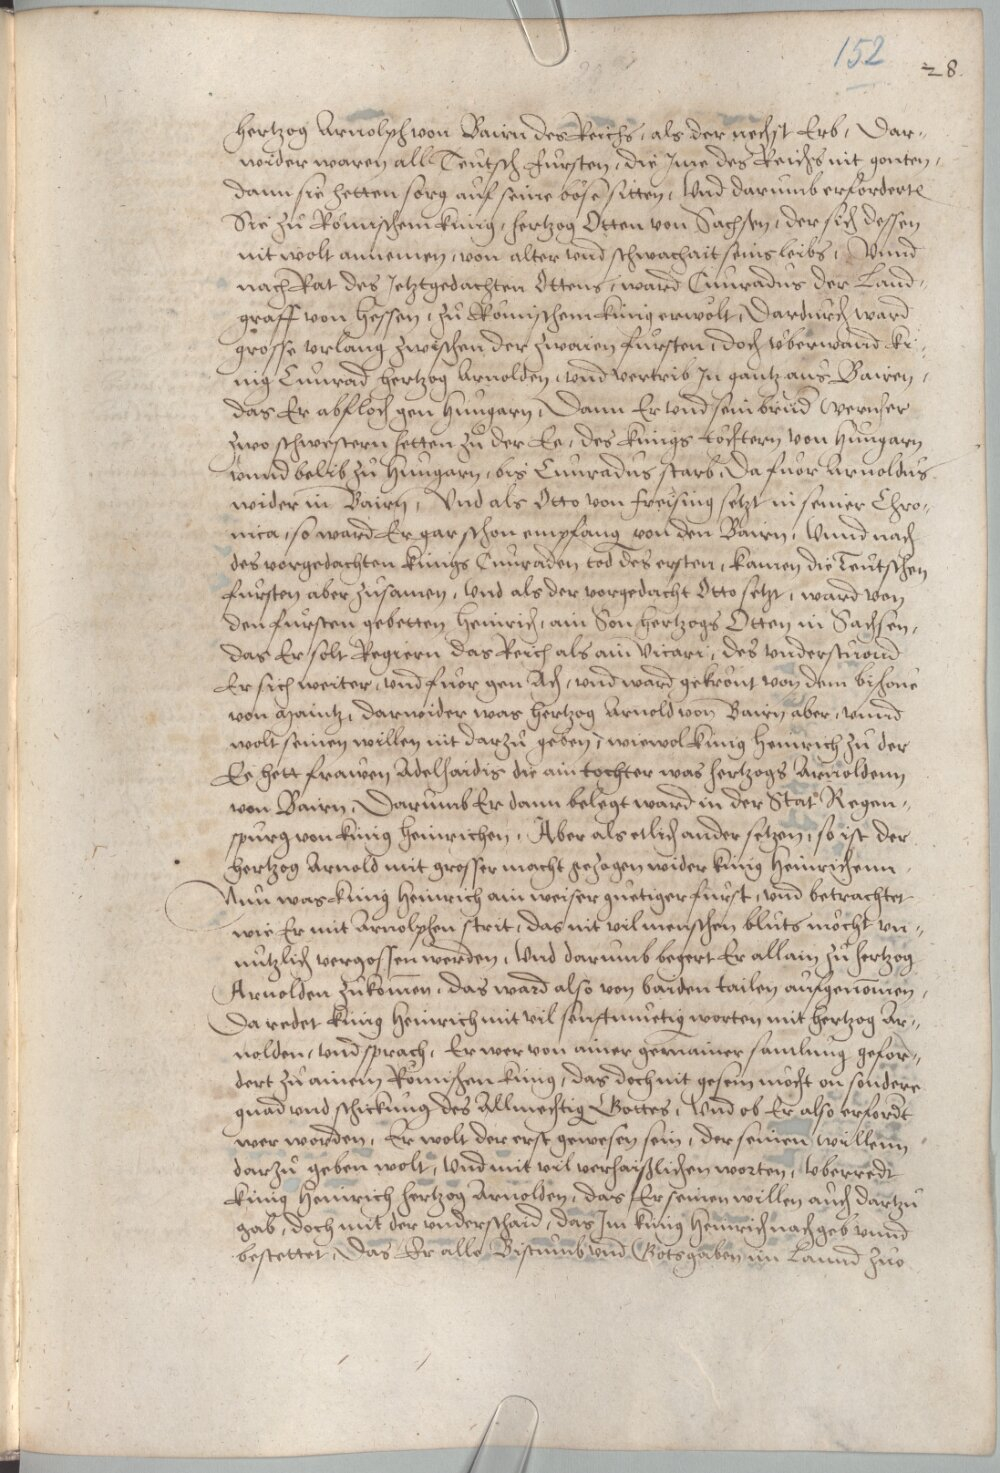 152
28.
hertzog Arnolph von Bairn des Reichs, als der nechst Erb, Dar-
wider waren all Teutsch fursten, die Ime des Reichs nit gonten,
dann sie hetten sorg auf seine böse sitten, Und darumb erfordertn
Sie zu Römischem kunig, hertzog Otten von Sachsen, der sich dessen
nit wolt annemen, von alter und schwachait seins leibs, Unnd
nach Rat des Jetztgedachten Ottens, ward Cunradus der Land-
graff von Hessen, zu Römischem kunig erwölt, Dardurch ward
grosse urlang zwischen der zwaien fursten, doch uberwand ku-
nig Cunrad hertzog Arnolden, und vertrib In gantz aus Bairen,
das Er abfloch gen Hungarn, Dann Er und sein brud Wernher
zwo schwestern hetten zu der Ee, des kunigs töchtern von Hungarn
unnd belib zu Hungarn, bis Cunradus starb, Da fuor Arnoldus
wider in Bairn, Und als Otto von freising setzt in seiner Chro-
nica, so ward Er gar schon empfang von den Bairn, Unnd nach
des vorgedachten kunigs Cunraden tod des ersten, kamen die Teutschen
fursten aber zusamen, Und als der vorgedacht Otto setzt, ward von
den fursten gebetten Heinrich, ain Son hertzogs Otten in Sachsen,
das Er solt Regiern das Reich als ain Vicari, des understuond
Er sich weiter, und fuor gen Ach, und ward gekrönt von dem bishove
von Maintz, darwider was hertzog Arnold von Bairn aber, unnd
wolt seinen willen nit darzu geben, wiewol kunig Heinrich zu der
Ee hett frawen Adelhaidis die ain tochter was hertzogs Arnoldenn
von Bairn, Darumb Er dann belegt ward in der Stat Regen-
spurg von kunig Heinrichen, Aber als etlich ander setzen, so ist der
hertzog Arnold mit grosser macht gezogen wider kunig Heinrichenn
Nun was kunig Heinrich ain weiser guetiger furst, und betrachtet
wie Er mit Arnolphen strit, das nit vil menschen bluts möcht un-
nutzlich vergossen werden, Und darumb begert Er allain zu hertzog
Arnolden zukomen, das ward also von baiden tailen aufgenomen,
Da redet kunig Heinrich mit vil senftmuetig worten mit hertzog Ar-
nolden, und sprach, Er wer von ainer gemainer samlung gefor-
dert zu ainem Römischen kunig, das doch nit gesein möcht on sondere
gnad und schickung des Allmechtig Gottes, Und ob Er also erfordt
wer worden, Er wolt der erst gewesen sein, der seinen willenn
darzu geben wolt, Und mit vil verhaißlichen worten, uberredt
kunig Heinrich hertzog Arnolden, das Er seinen willen auch dartzu
gab, doch mit der underschaid, das Im kunig Heinrich nachgeb unnd
bestettet, Das Er alle Bistumb und Gotsgaben im Lannd zuo